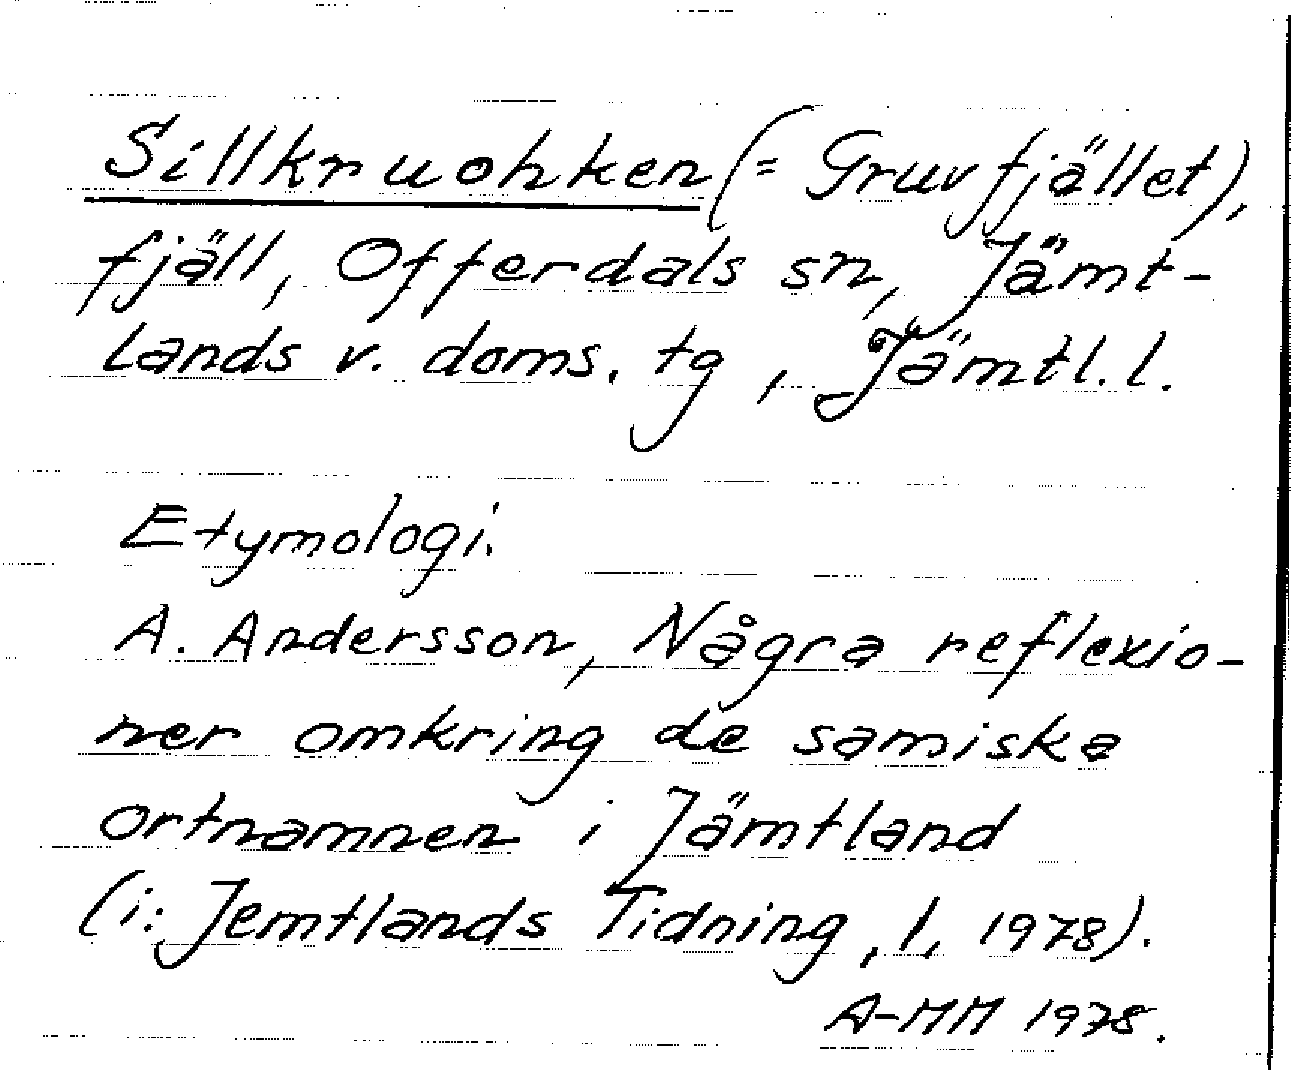 Sillkruohken (= Gruvfjället),
fjäll, Offerdals sn, Jämt-
lands v. doms. tg, Jämtl. l.
Etymologi:
A. Andersson, Några reflexio-
ner omkring de samiska
ortnamnen i Jämtland
(i: Jemtlands Tidning, l, 1978).
A-MM 1978.